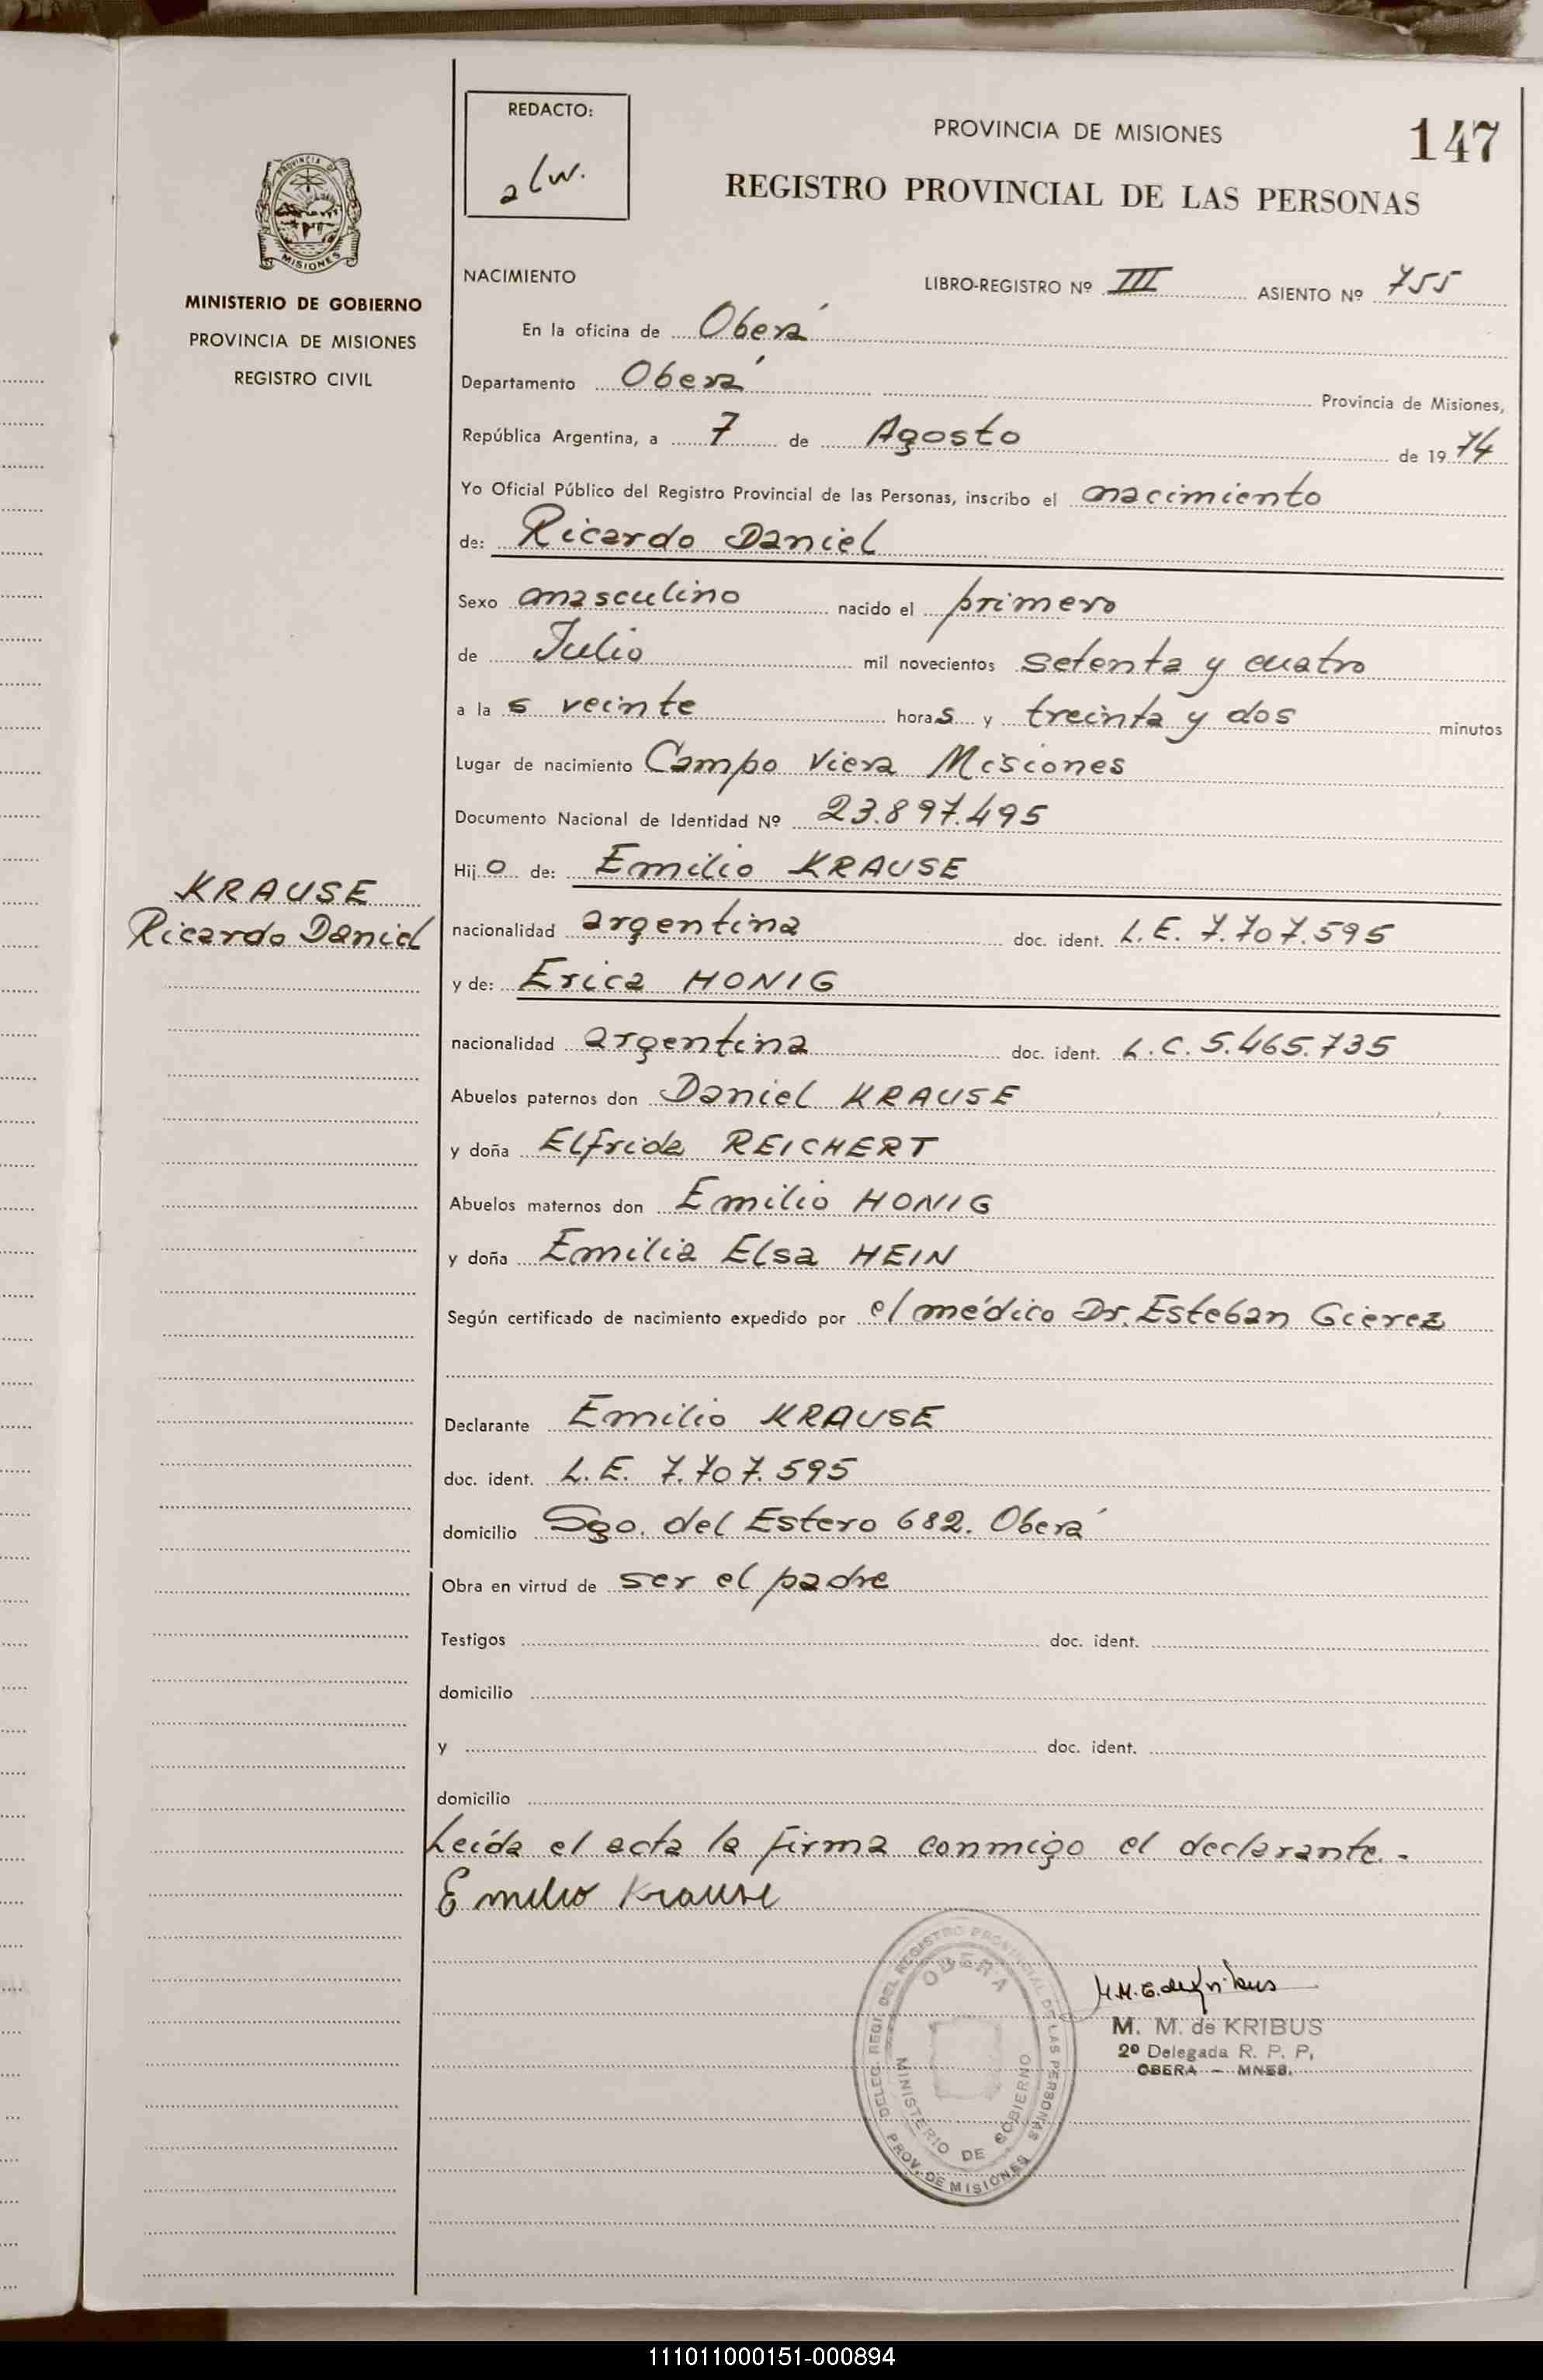 REDACTO:
alw.
PROVINCIA DE MISIONES
147
REGISTRO PROVINCIAL DE LAS PERSONAS
PROVINCIA DE
MISIONES
MINISTERIO DE GOBIERNO
PROVINCIA DE MISIONES
REGISTRO CIVIL
NACIMIENTO LIBRO-REGISTRO Nº III ASIENTO Nº 755
En la oficina de Oberá
Departamento Oberá Provincia de Misiones,
República Argentina, a 7 de Agosto de 1974
Yo Oficial Público del Registro Provincial de las Personas, inscribo el nacimiento
de: Ricardo Daniel
Sexo masculino nacido el primero
de Julio mil novecientos setenta y cuatro
a la s veinte horas y treinta y dos minutos
Lugar de nacimiento Campo Viera Misiones
Documento Nacional de Identidad Nº 23.897.495
Hijo de: Emilio KRAUSE
KRAUSE
Ricardo Daniel
nacionalidad argentina doc. ident. L.E. 7.707.595
y de: Erica HONIG
nacionalidad argentina doc. ident. L.C. 5.465.735
Abuelos paternos don Daniel KRAUSE
y doña Elfrida REICHERT
Abuelos maternos don Emilio HONIG
y doña Emilia Elsa HEIN
Según certificado de nacimiento expedido por el médico Dr. Esteban Gierez
Declarante Emilio KRAUSE
doc. ident. L.E. 7.707.595
domicilio Sgo. del Estero 682. Oberá
Obra en virtud de ser el padre
Testigos doc. ident.
domicilio
y doc. ident.
domicilio
Leída el acta la firma conmigo el declarante.-
Emilio Krause
DELEG. REGI. DEL REGISTRO PROVINCIAL DE LAS PERSONAS
OBERA
MINISTERIO DE GOBIERNO
PROV. DE MISIONES
M. M. de KRIBUS
2º Delegada R. P. P.
OBERA - MNES.
111011000151-000894